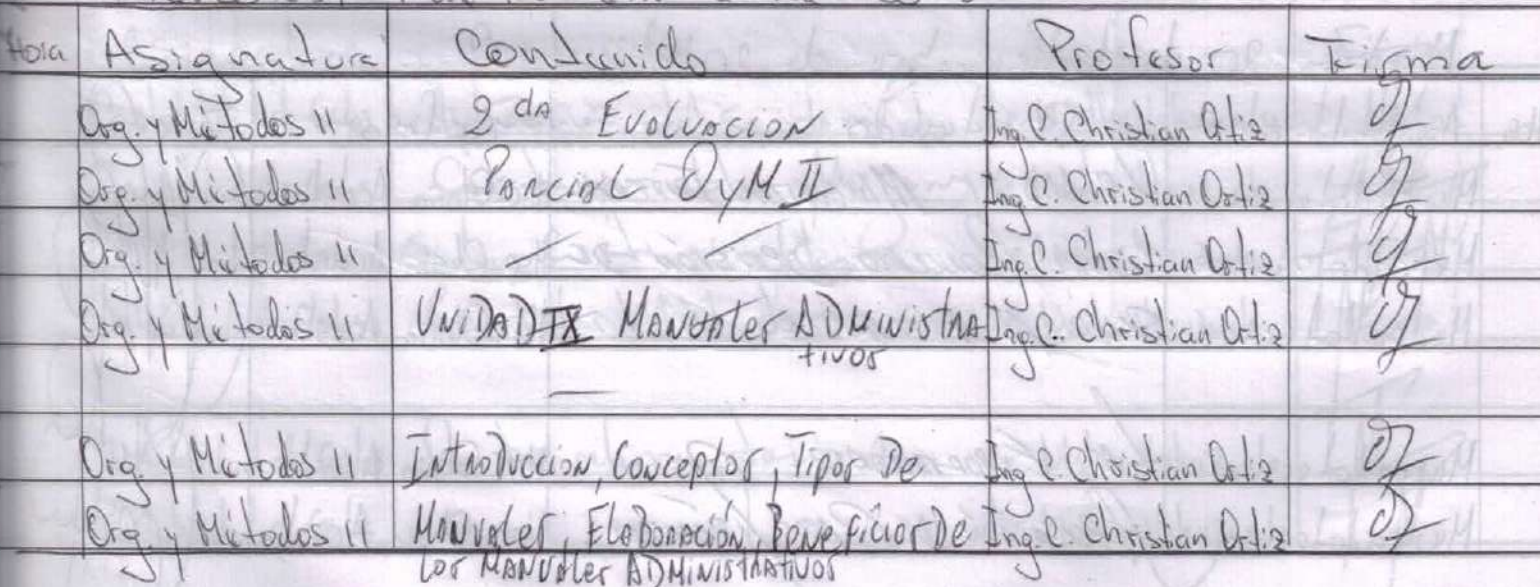 Hora Asignatura Contenido Profesor Firma
Org. y Métodos II 2da Evolución Ing. C. Christian Ortiz
Org. y Métodos II Parcial OyM II Ing. C. Christian Ortiz
Org. y Métodos II Ing. C. Christian Ortiz
Org. y Métodos II UNIDAD IX MANUALES ADMINISTRA Ing. C. Christian Ortiz
tivos
Org. y Métodos II Introduccion, Conceptos, Tipos De Ing. C. Christian Ortiz
Org. y Métodos II Manuales, Elaboración, Beneficios De Ing. C. Christian Ortiz
Los MANUALES ADMINISTRATIVOS